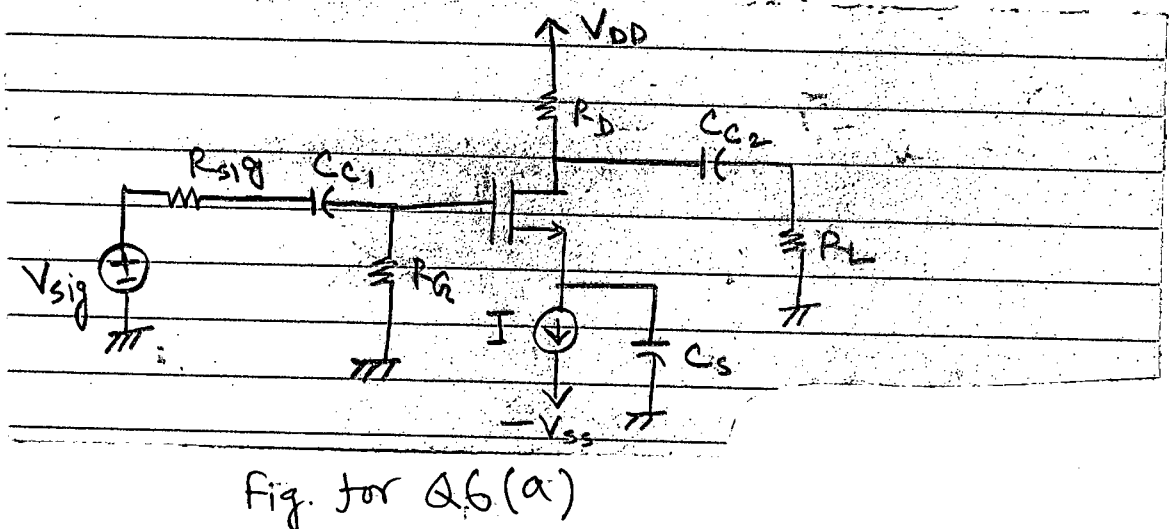 V_DD
R_D
C_C2
R_sig C_C1
R_L
V_sig
R_G
I
C_s
-V_ss
Fig. for Q.6(a)